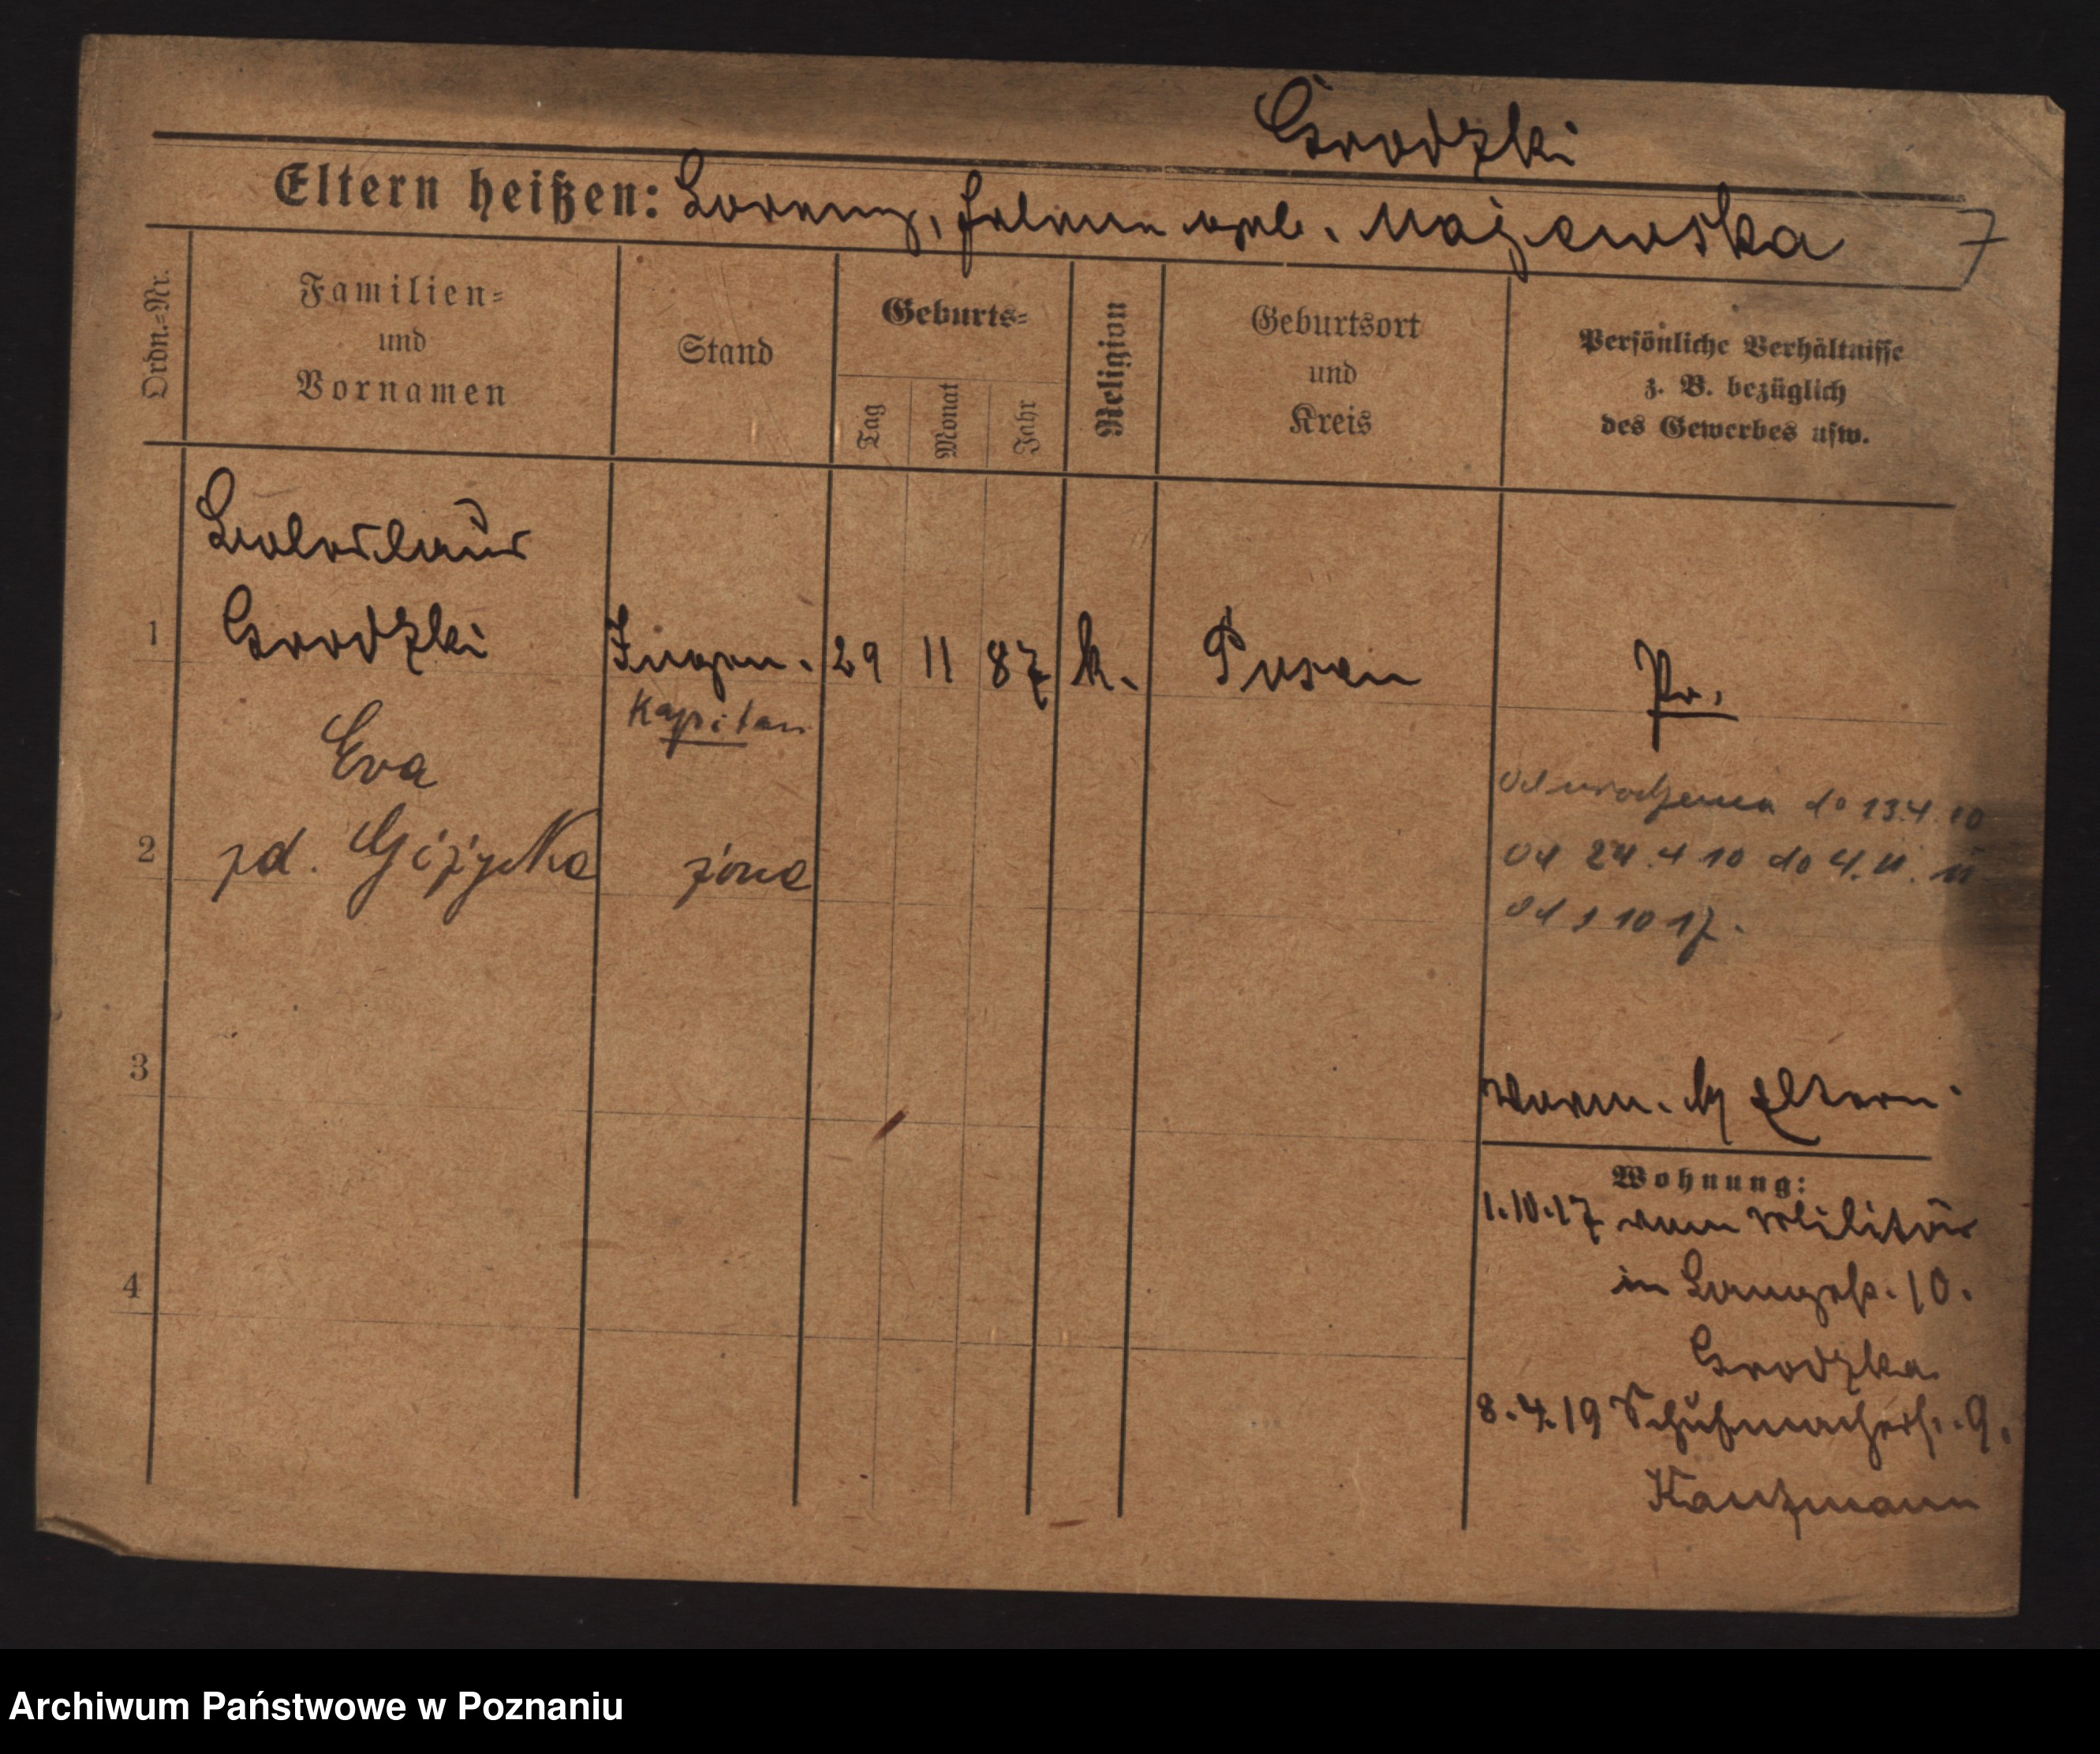 Grodzki
Eltern heißen: Lorenz, Helene geb. Majewska
7
Ordn.=Nr.
Familien=
und
Vornamen
Stand
Geburts=
Tag
Monat
Jahr
Religion
Geburtsort
und
Kreis
Persönliche Verhältnisse
z. B. bezüglich
des Gewerbes usw.
Boleslaus
1 Grodzki Ingen. 29 11 87 k. Posen Pr.
Kapitan
Eva
2 zd. Giżycka żona
Od urodzenia do 13.4.10
Od 24.4 10 do 4.11.11
Od 1 10 17.
3
Eltern
Wohnung:
1.10.17 vom Militär
in Langestr. 10.
Grodzka
4
8.4.19 Schuhmacherstr. 9.
Kantzmann
Archiwum Państwowe w Poznaniu